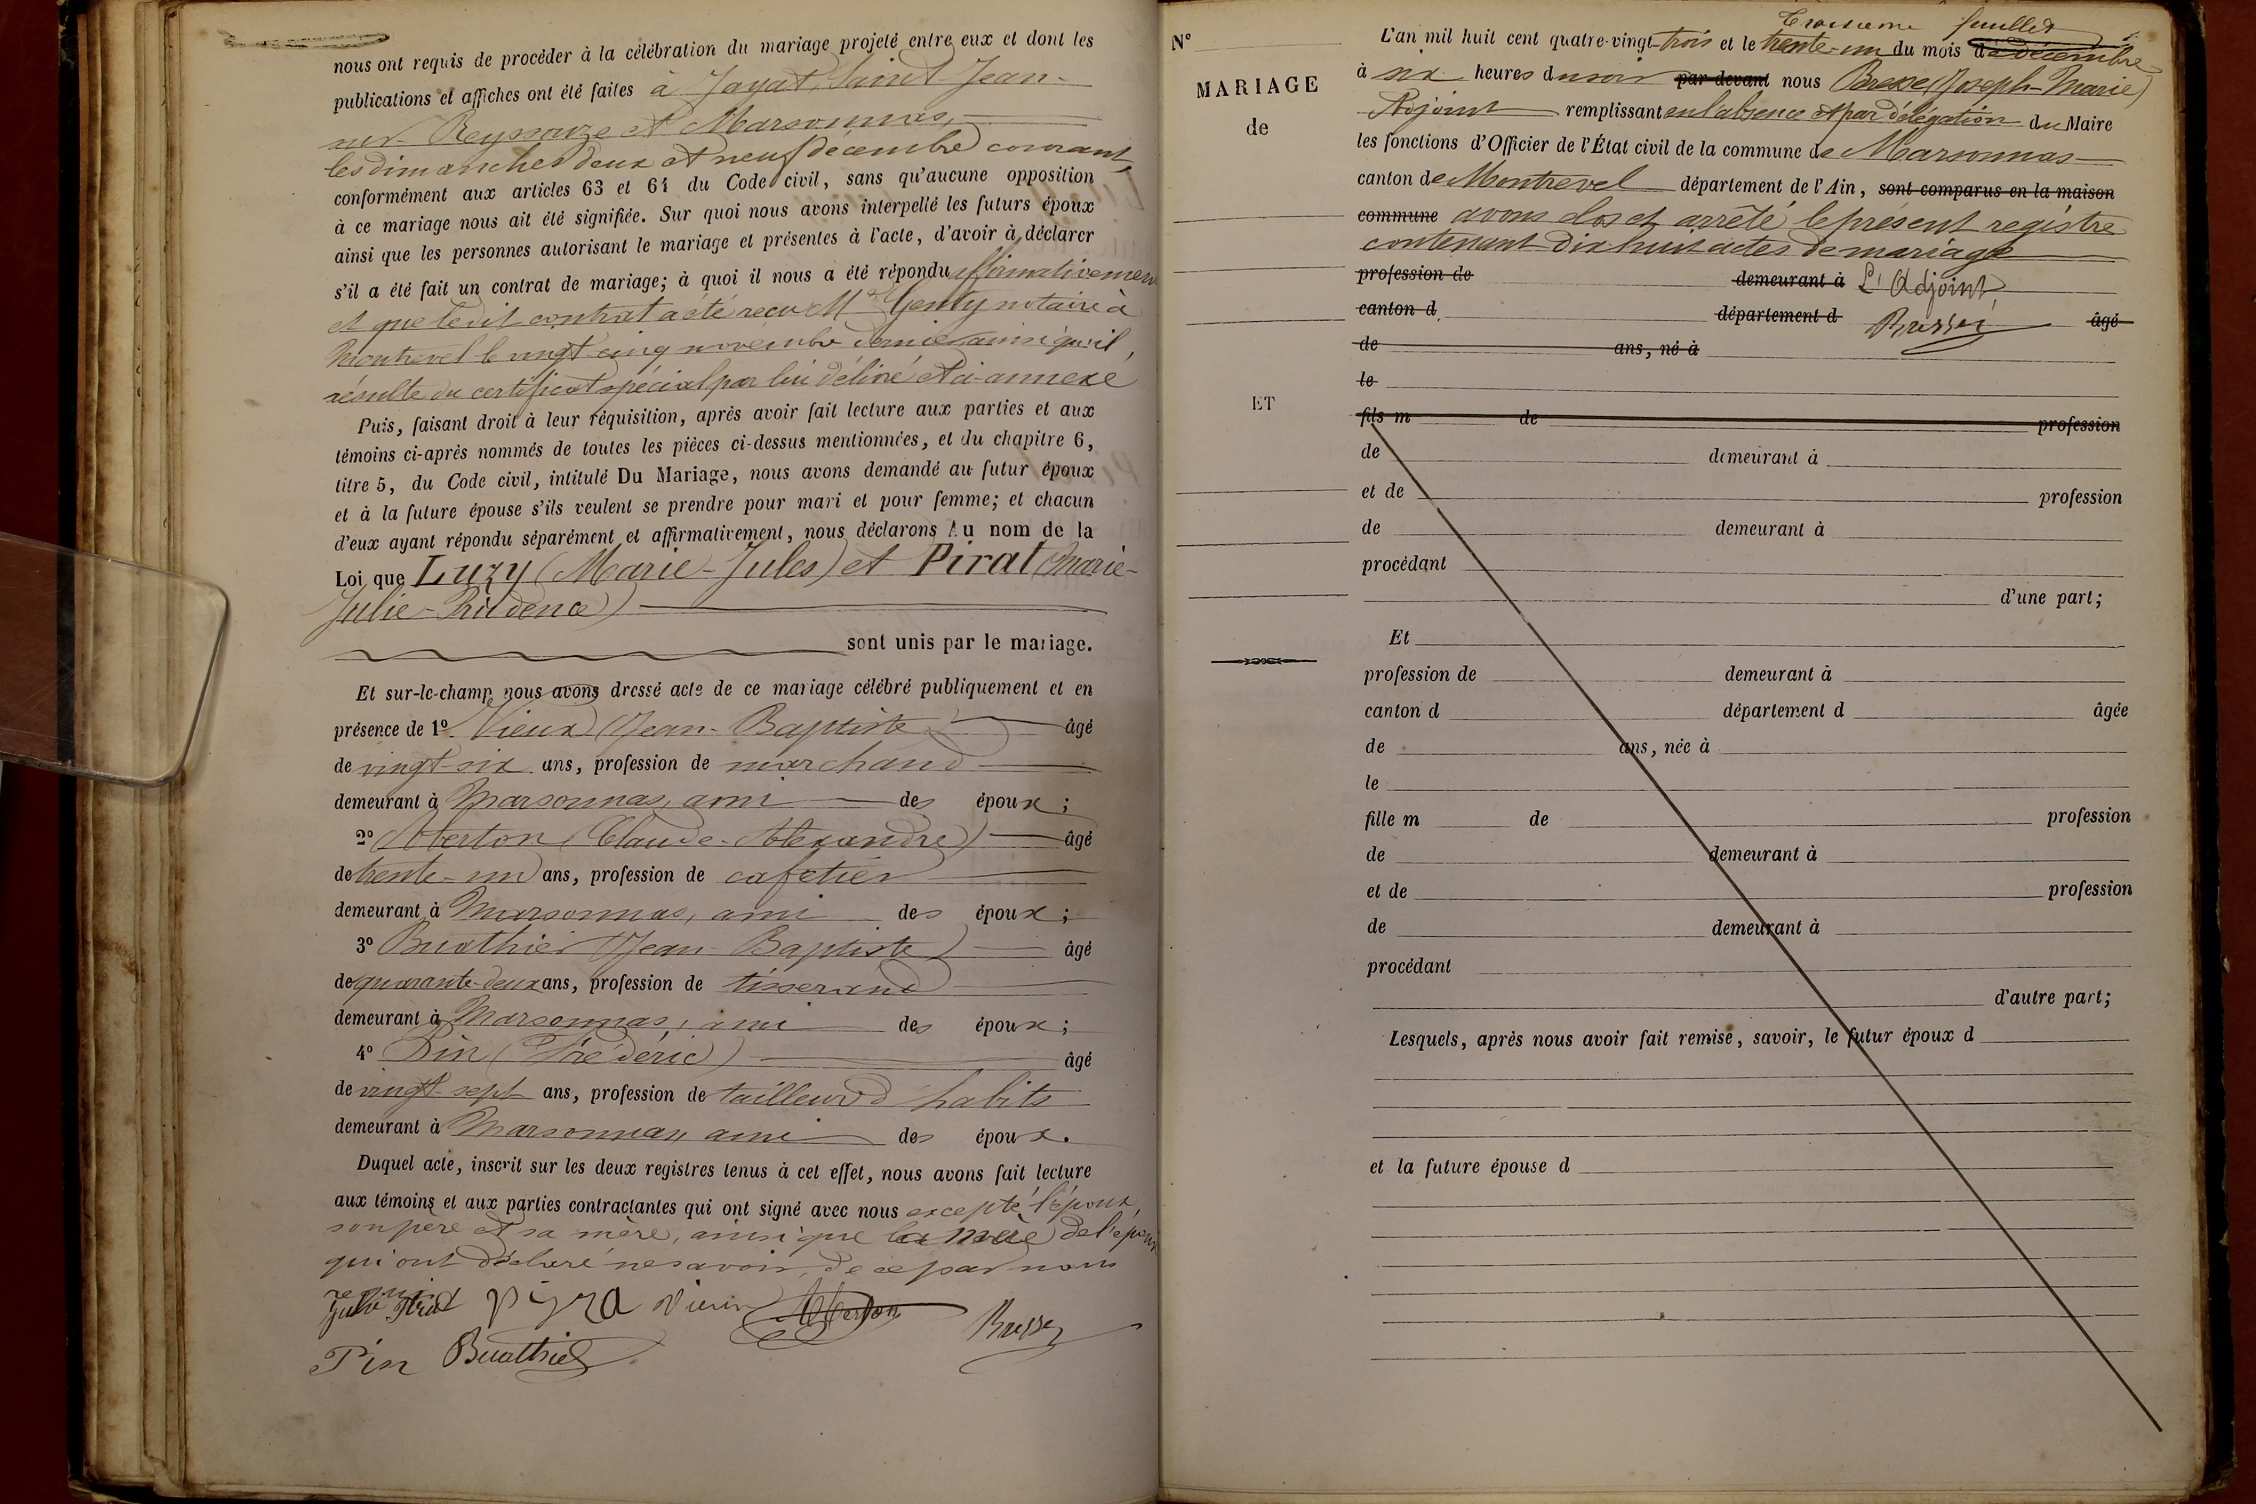 nous ont requis de procéder à la célébration du mariage projeté entre eux et dont les
publications et affiches ont été faites à Jayat, Saint-Jean-
sur-Reyssouze et Marsonnas,
les dimanches deux et neuf décembre courant,
conformément aux articles 63 et 64 du Code civil, sans qu'aucune opposition
à ce mariage nous ait été signifiée. Sur quoi nous avons interpellé les futurs époux
ainsi que les personnes autorisant le mariage et présentes à l'acte, d'avoir à déclarer
s'il a été fait un contrat de mariage; à quoi il nous a été répondu affirmativement
et que le dit contrat a été reçu Me Genty notaire à
Montrevel le vingt cinq novembre dernier ainsi qu'il
résulte du certificat spécial par lui délivré et ci-annexé
Puis, faisant droit à leur réquisition, après avoir fait lecture aux parties et aux
témoins ci-après nommés de toutes les pièces ci-dessus mentionnées, et du chapitre 6,
titre 5, du Code civil, intitulé Du Mariage, nous avons demandé au futur époux
et à la future épouse s'ils veulent se prendre pour mari et pour femme; et chacun
d'eux ayant répondu séparément et affirmativement, nous déclarons Au nom de la
Loi que Luzy (Marie-Jules) et Pirat (Marie-
Julie-Prudence)
sont unis par le mariage.
Et sur-le-champ nous avons dressé acte de ce mariage célébré publiquement et en
présence de 1º Vieux (Jean-Baptiste) âgé
de vingt-six ans, profession de marchand
demeurant à Marsonnas, ami des époux;
2º Aberton (Claude-Alexandre) âgé
de trente-un ans, profession de cafetier
demeurant à Marsonnas, ami des époux;
3º Buathier (Jean-Baptiste) âgé
de quarante-deux ans, profession de tisserand
demeurant à Marsonnas, ami des époux;
4º Pin (Frédéric) âgé
de vingt-sept ans, profession de tailleur d'habits
demeurant à Marsonnas, ami des époux.
Duquel acte, inscrit sur les deux registres tenus à cet effet, nous avons fait lecture
aux témoins et aux parties contractantes qui ont signé avec nous excepté l'époux,
son père et sa mère, ainsi que la mère de l'épouse
qui ont déclaré ne savoir, de ce par nous
requis
Julie Pirat Vieux Aberton Bressez
Pin Buathier
Troisième feuillet
Nº
MARIAGE
de
ET
L'an mil huit cent quatre-vingt-trois et le trente-un du mois de décembre
à six heures du soir par devant nous (Joseph-Marie)
Adjoint remplissant en l'absence et par délégation du Maire
les fonctions d'Officier de l'État civil de la commune de Marsonnas
canton de Montrevel département de l'Ain, sont comparus en la maison
commune avons clos et arrêté le présent registre
contenant dix huit actes de mariage
profession de demeurant à L'Adjoint,
canton d département d Bressez âgé
de ans, né à
le
fils m de profession
de demeurant à
et de profession
de demeurant à
procédant
d'une part;
Et
profession de demeurant à
canton d département d âgée
de ans, née à
le
fille m de profession
de demeurant à
et de profession
de demeurant à
procédant
d'autre part;
Lesquels, après nous avoir fait remise, savoir, le futur époux d
et la future épouse d